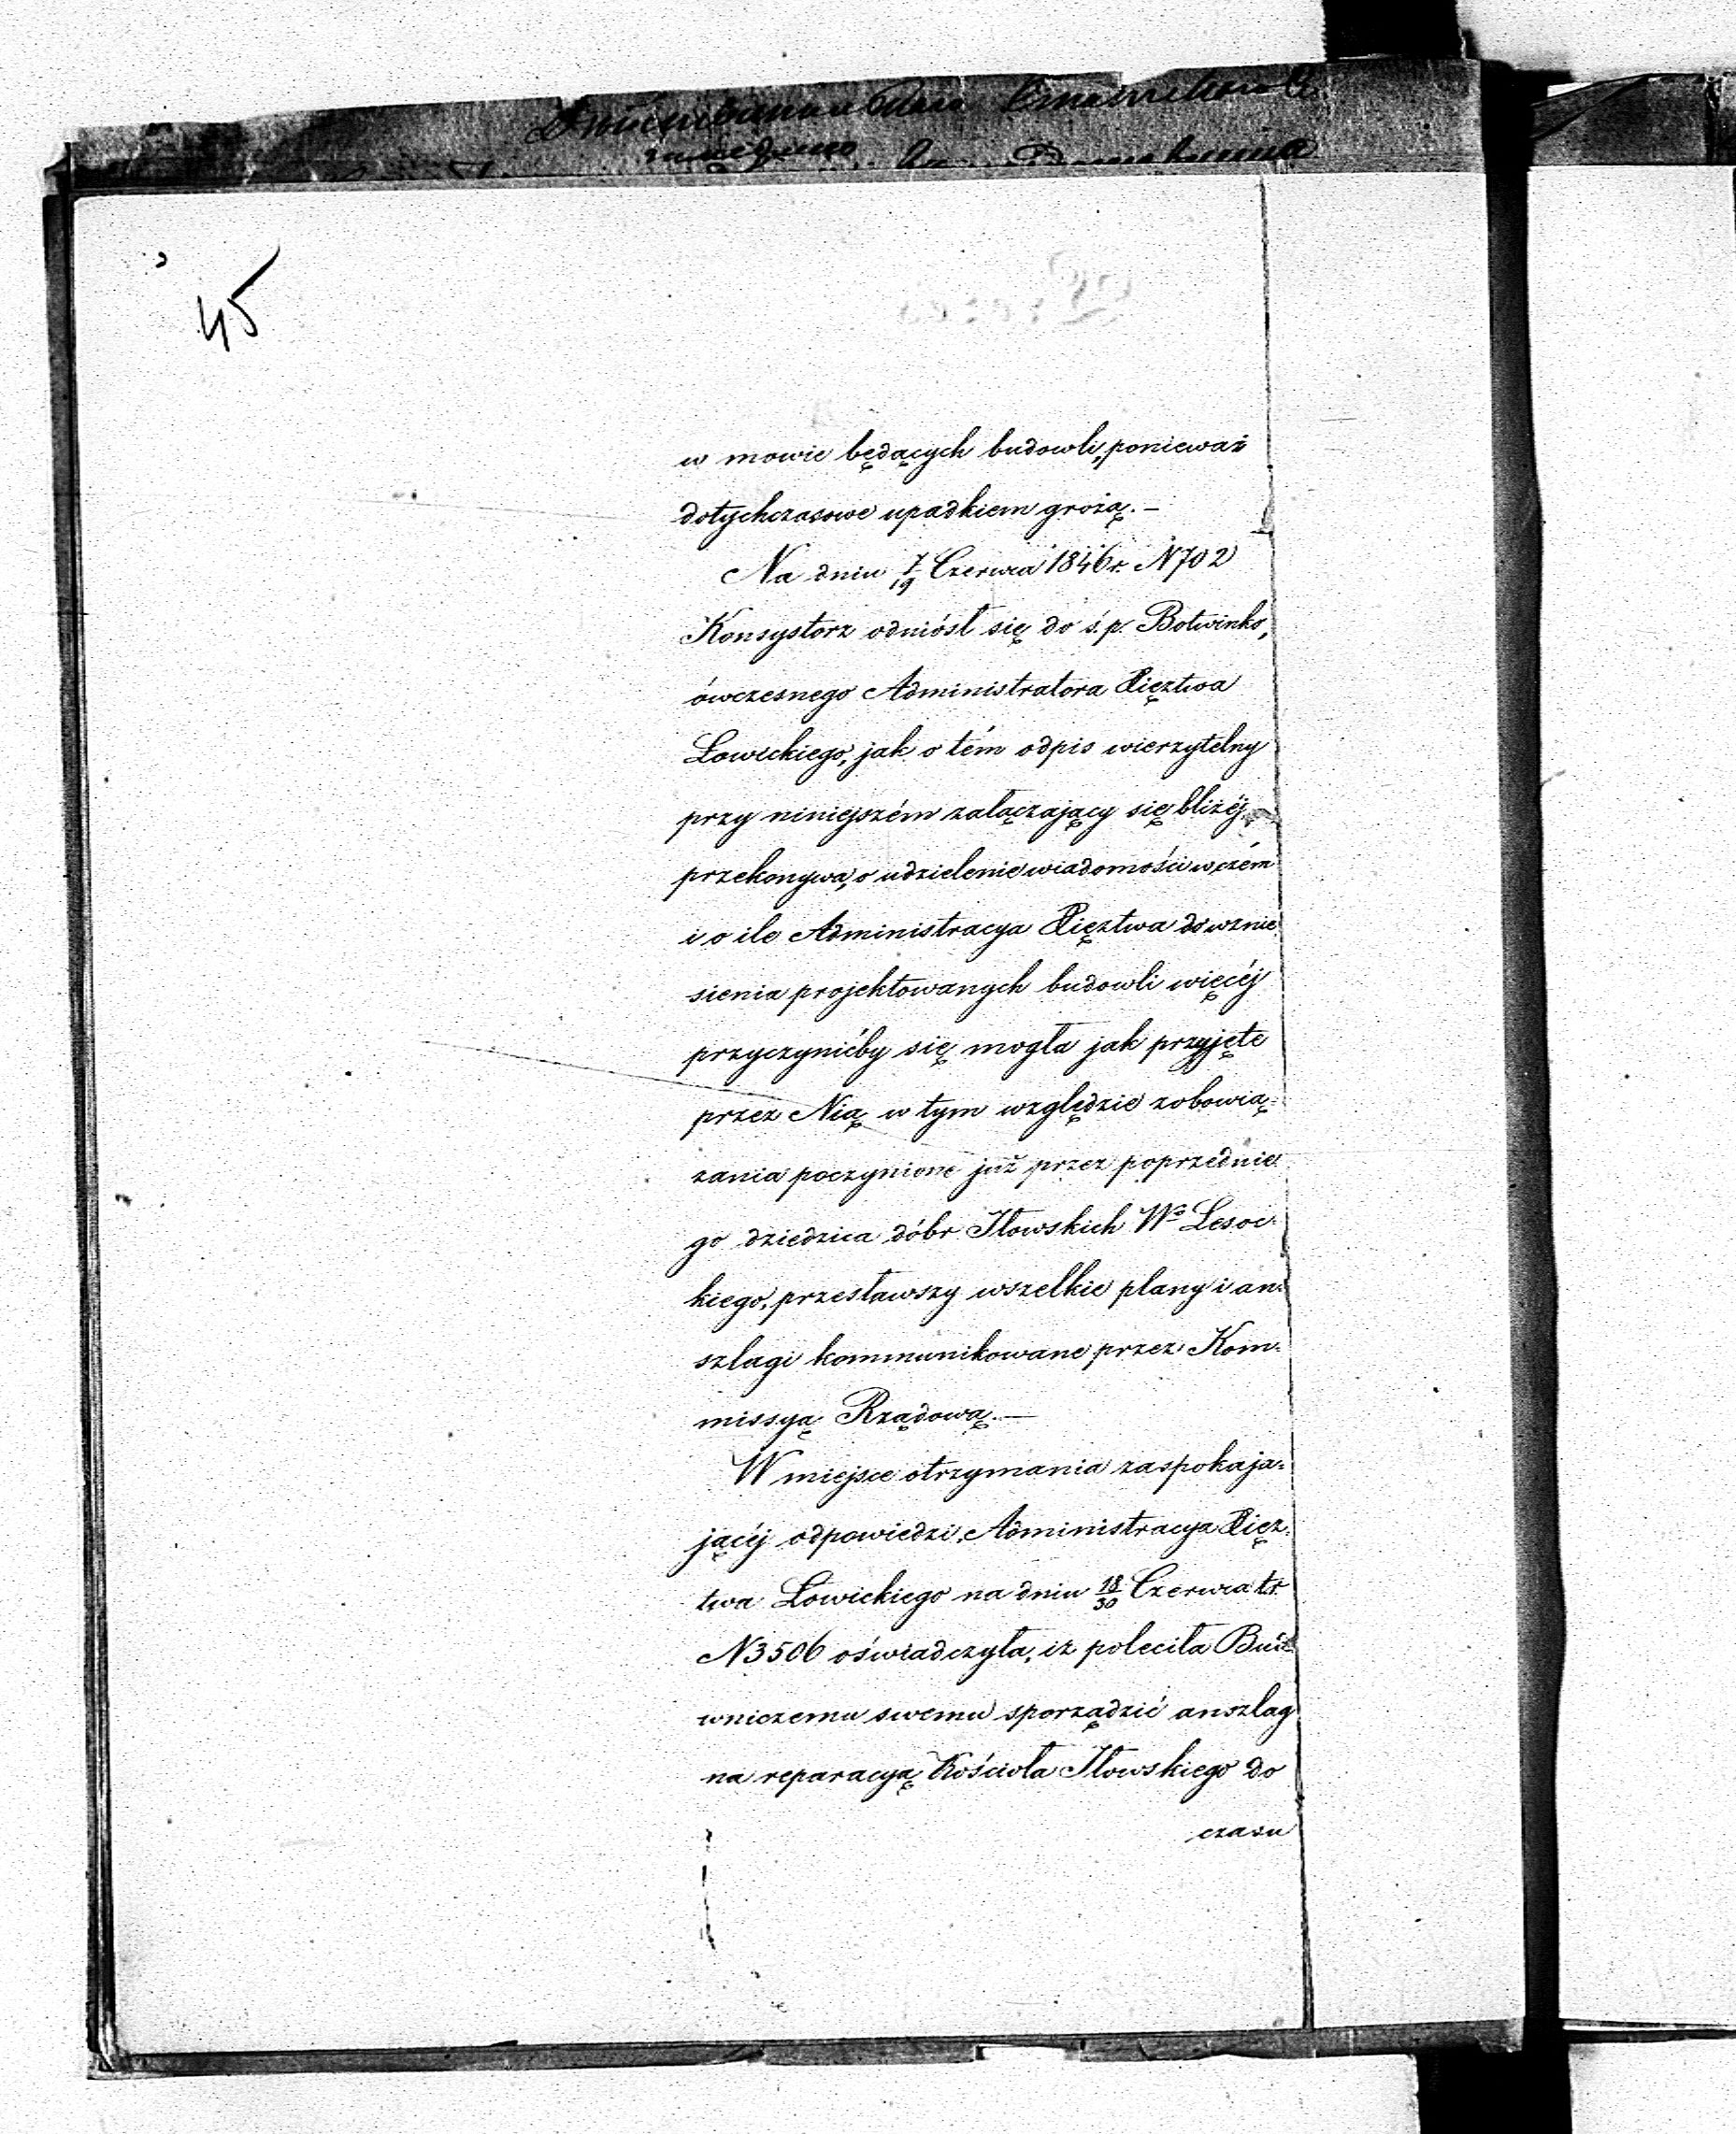 45
w mowie będących budowli, ponieważ
dotychczasowe upadkiem grożą. —
Na dniu 7/19 Czerwca 1846 r. N 702
Konsystorz odniósł się do ś. p. Botwinko,
ówczesnego Administratora Xięztwa
Łowickiego, jak o tém odpis wierzytelny
przy niniejszém załączający się bliżéj
przekonywa, o udzielenie wiadomości w czém
i o ile Administracya Xięztwa do wznie
sienia projektowanych budowli więcéj
przyczynićby się mogła jak przyjęte
przez Nią w tym względzie zobowią-
zania poczynione już przez poprzednie
go dziedzica dóbr Iłowskich Wo Lesoc-
kiego, przesławszy wszelkie plany i an-
szlagi kommunikowane przez Kom-
missyą Rządową. —
W miejsce otrzymania zaspokaja-
jącéj odpowiedzi, Administracya Xięz-
twa Łowickiego na dniu 18/30 Czerwca t. r.
N 3506 oświadczyła, iż poleciła Budo
wniczemu swemu sporządzić anszlag
na reparacyą Kościoła Iłowskiego do
czasu